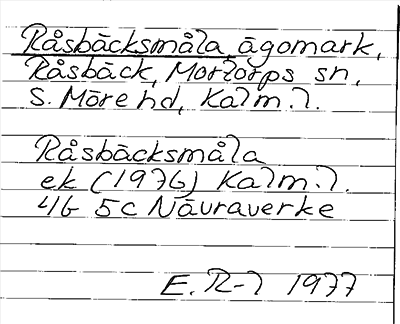 Råsbäcksmåla ägomark,
Råsbäck, Mortorps sn,
S. Möre hd, Kalm. l.
Råsbäcksmåla
ek (1976) Kalm. l.
4G 5c Nävraverke
E. R-l 1977